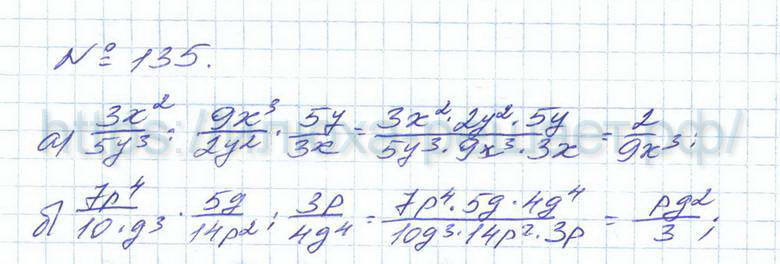 № 135.
а) 3x²/5y³ : 9x³/2y² · 5y/3x = 3x²·2y²·5y/5y³·9x³·3x = 2/9x³;
б) 7p⁴/10·g³ · 5g/14p² : 3p/4g⁴ = 7p⁴·5g·4g⁴/10g³·14p²·3p = pg²/3;